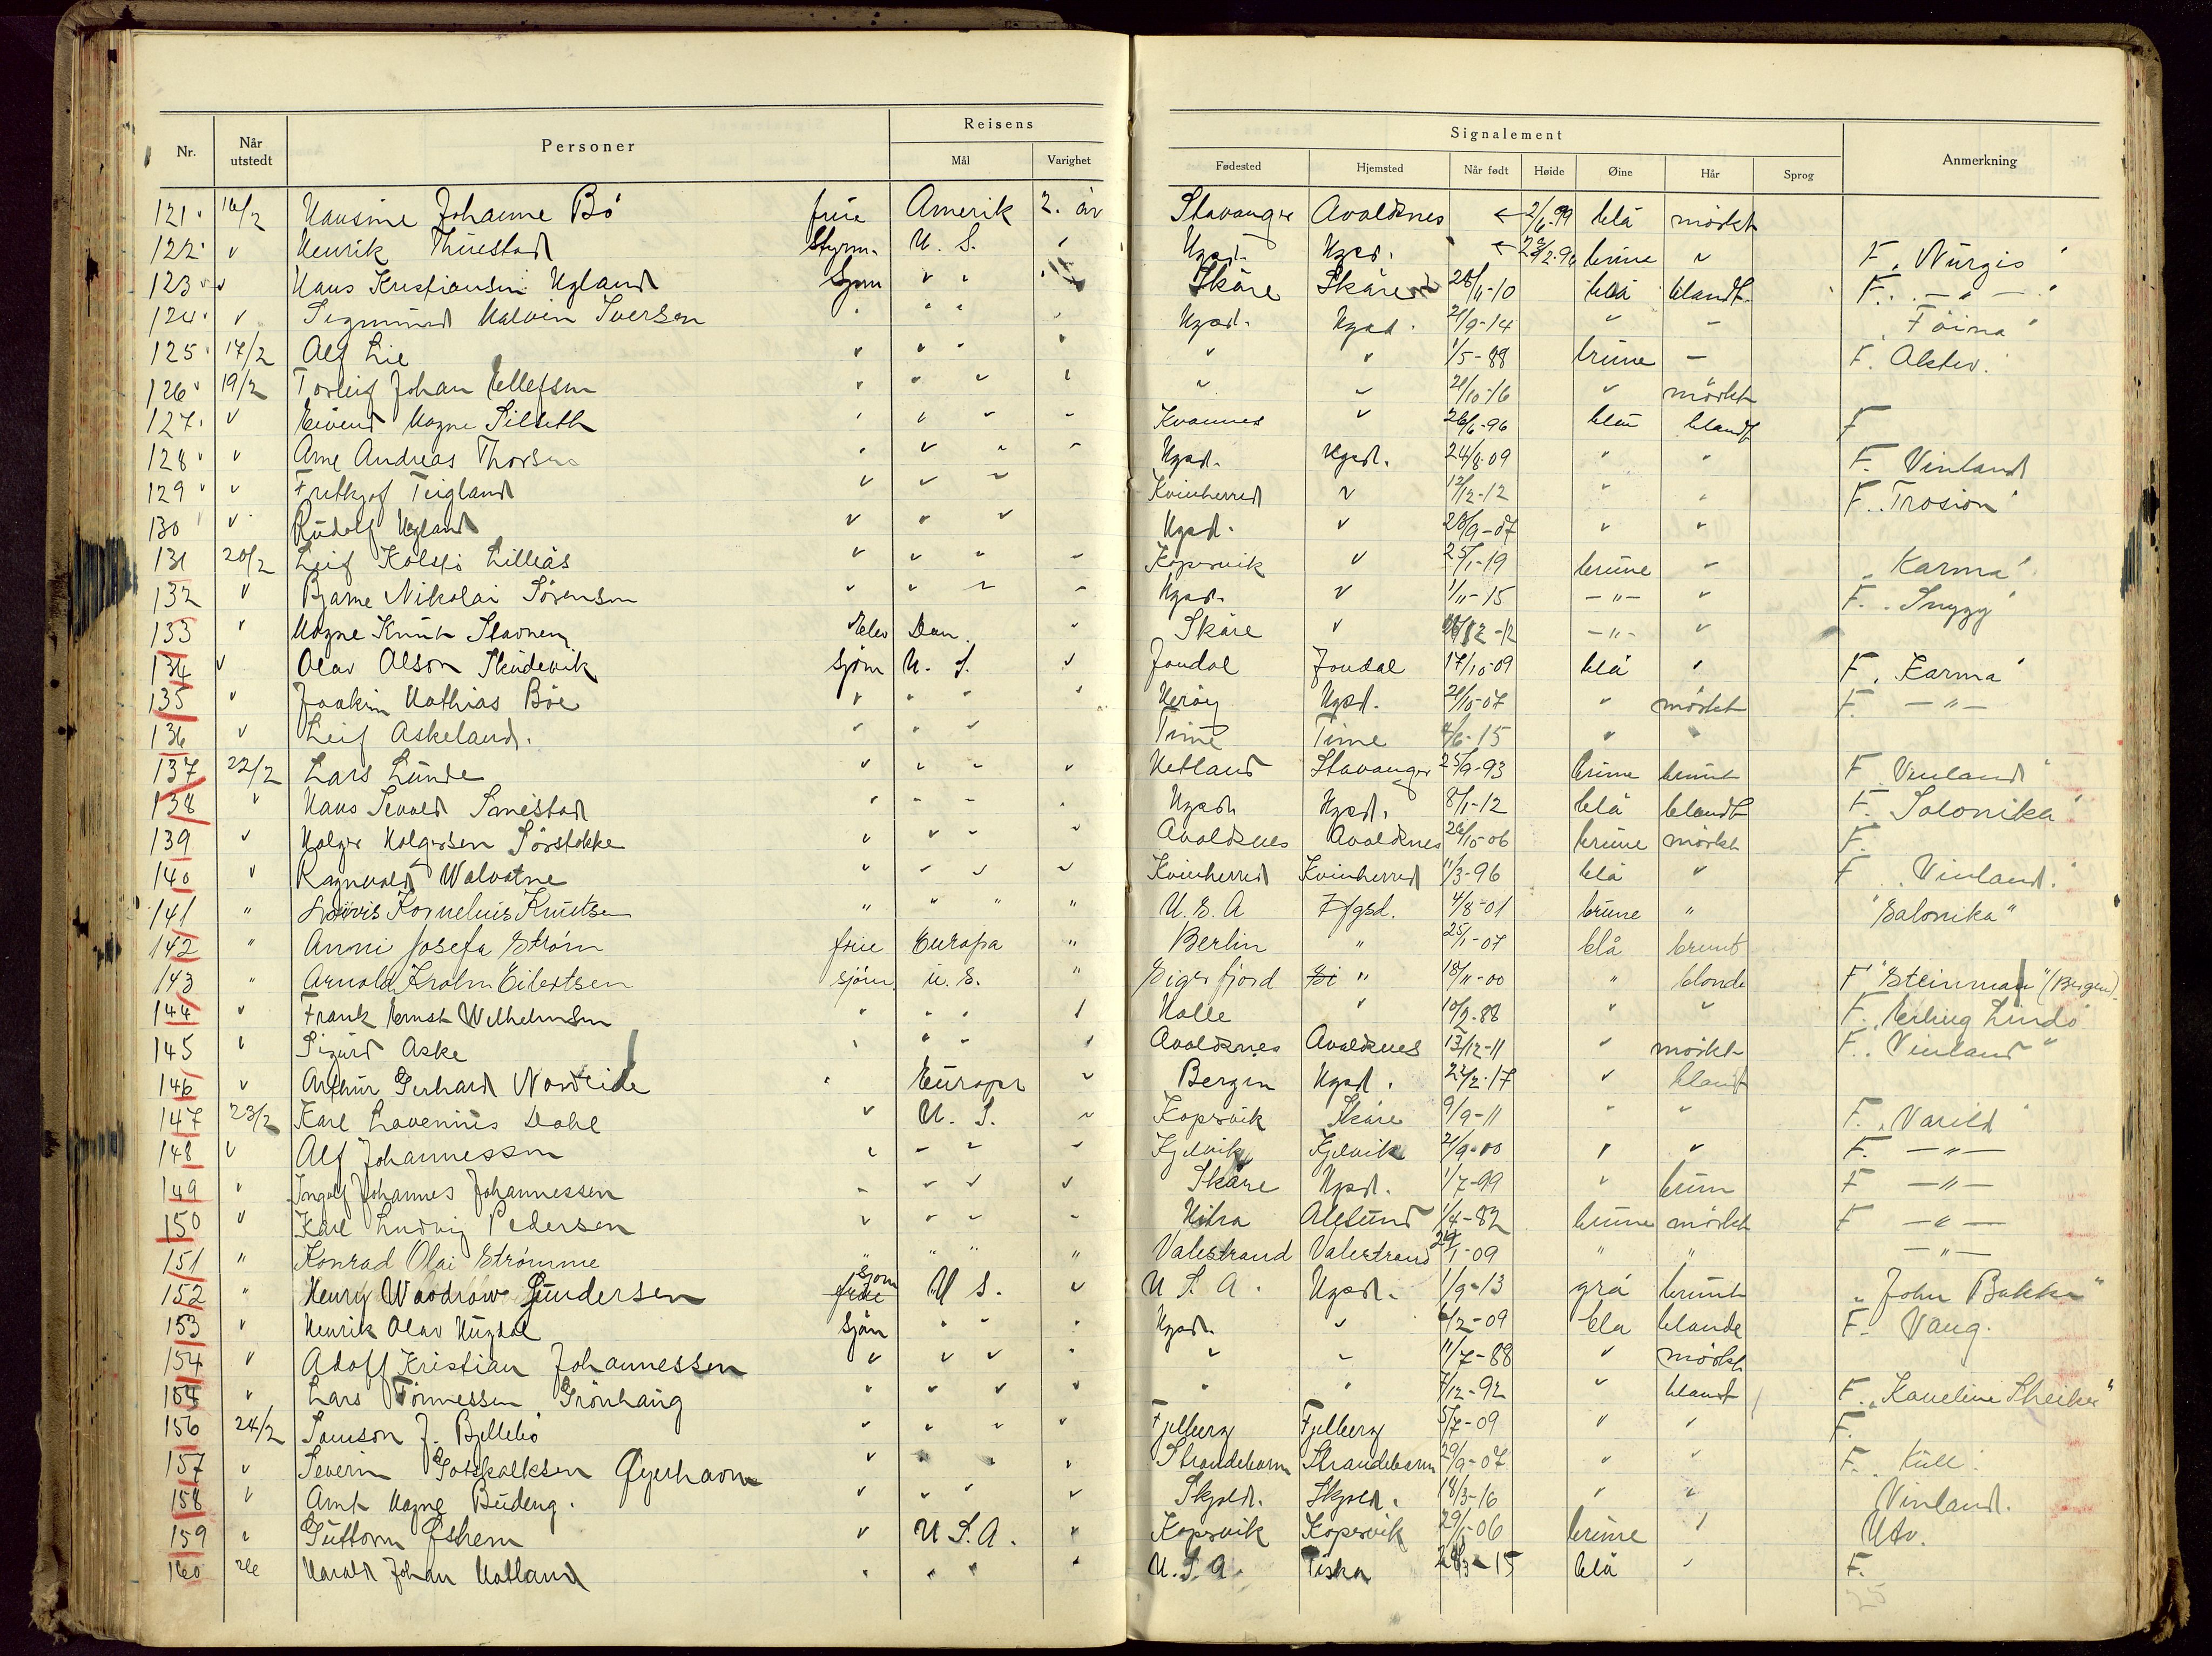 Reisens
Signalement
Nr. Når utstedt Personer Mål Varighet Fødested Hjemsted Når født Høide Øine Hår Sprog Anmerkning
121 16/2 Hansine Johanne Bö frue Amerik 2. år Stavanger Avaldsnes ← 2/6-99 blå mörkt
122 " Henrik Styrm. U. S. " Hgsd. Hgsd. brune " F. "Nurgis"
123 " Hans Kristiansen Hgland Sjøm " " Skåre Skåre 28/11-10 blå blondt F. — " —
124 " Sigmund Halvin Iversen " " " Hgsd. Hgsd. 21/9-14 " — "Föina"
125 17/2 Alf Lie " " " " " " 1/5-88 brune — F. Aktiv.
126 19/2 Torleif Johan Ellefsen " " " " " " 21/10-16 " mörkt
127 " Eivind Magne " " " " Kvannes " 26/6-96 blå blondt F
128 " Arne Andreas Thorsen " " " " Hgsd. Hgsd. 24/8-09 " " F. Vinland
129 " Fritjof Teigland " " " Kvinherred " 12/12-12 " " F. "Trosion"
130 " Rudolf Hgland " " " Hgsd. " 28/9-07 " "
131 20/2 Leif Kolstö Lilleås " " " " Kopervik " 25/1-19 brune " "Karma"
132 " Bjarne Nikolai Sörensen " " " " Hgsd. " 1/11-15 — " — " F. "Snygg"
133 " Magne Knut Stavnem Elev Dan. " Skåre " — " — "
134 " Olav Olson Skudevik sjøm U. S. " Jondal Jondal 17/10-09 blå " F. "Karma"
135 " Joakim Mathias Böe " " " " Heröy Hgsd. 21/10-07 " mörkt F. — " —
136 " Leif Askeland. " " " Time Time 4/6-15 " "
137 22/2 Lars Lunde " " " " Hetland Stavanger 25/9-93 brune brunt F "Vinland"
138 " Hans Sevald Smestad " " " " Hgsd. Hgsd. 8/1-12 blå blondt F. "Salonika"
139 " Holger Holgersen Sörstokke " " " " Avaldsnes Avaldsnes 26/10-06 brune mörkt F.
140 " Ragnvald Walvatne " " " " Kvinherred Kvinherred 11/3-96 blå " F "Vinland."
141 " Kornelius Knutsen " " " " U. S. A Hgsd. 4/8-01 brune " "Salonika"
142 " Anni Josefa Strøm frue Europa " Berlin " 25/1-07 blå brunt
143 " Arnold Krohn Eilertsen sjöm. U. S. " Sigerfjord " 18/11-00 " blonde F "Steinman" (Bergen).
144 " Frank Ernst Wilhelmsen " " " " Halle " 10/2-88 " " F. "Erling Lindö
145 " Sigurd Aske " " " " Avaldsnes Avaldsnes 13/12-11 " mörkt F. "Vinland"
146 " Arthur Gerhard Nordeide " Europa " Bergen Hgsd. 22/2-17 " blondt
147 23/2 Karl Lavenius Dahl " U. S. " Kopervik Skåre 9/9-11 " " F. "Varild"
148 " Alf Johannessen " " " " Gjelvik Gjelvik 21/9-00 " " F. — " —
149 " Ingolf Johannes Johannessen " " " " Skåre Hgsd. 1/7-99 " brun F — " —
150 " Karl Ludvig Pedersen " " " " Hitra Alesund 1/4-82 brune mörkt F — " —
151 " Konrad Olai Strømme " " " " Valestrand Valestrand 29/1-09 " " — " —
152 " Henry Woodrow Gundersen sjøm U S. " U S. A. Hgsd. 1/9-13 grå brunt "John Bakke"
153 " Henrik Olav Hugdal sjøm " " " Hgsd. " 6/2-09 bla blonde F. Vang.
154 " Adolf Kristian Johannessen " " " " " " 11/7-88 " mörkt
154 " Lars Tönnessen Grönhaug " " " " " " 7/12-92 " blondt F. "Kaveline Skeiker"
156 24/2 Samson J. Bjellebö " " " " Fjelberg Fjelberg 5/7-09 " " F.
157 " Severin Gotskalksen Øyerhavn " " " " Strandebarm Strandebarm 29/9-07 " " F. "Kull"
158 " Arnt Magne Budeng. " " " " Skjold. Skjold. 18/3-16 " " Vinland.
159 " Guttorm Østrem " U S. A. " Kopervik Kopervik 29/5-06 brune " Utv.
160 26 Harald Johan Hatland " " " " U. S. A. 28/3-15 blå " F.